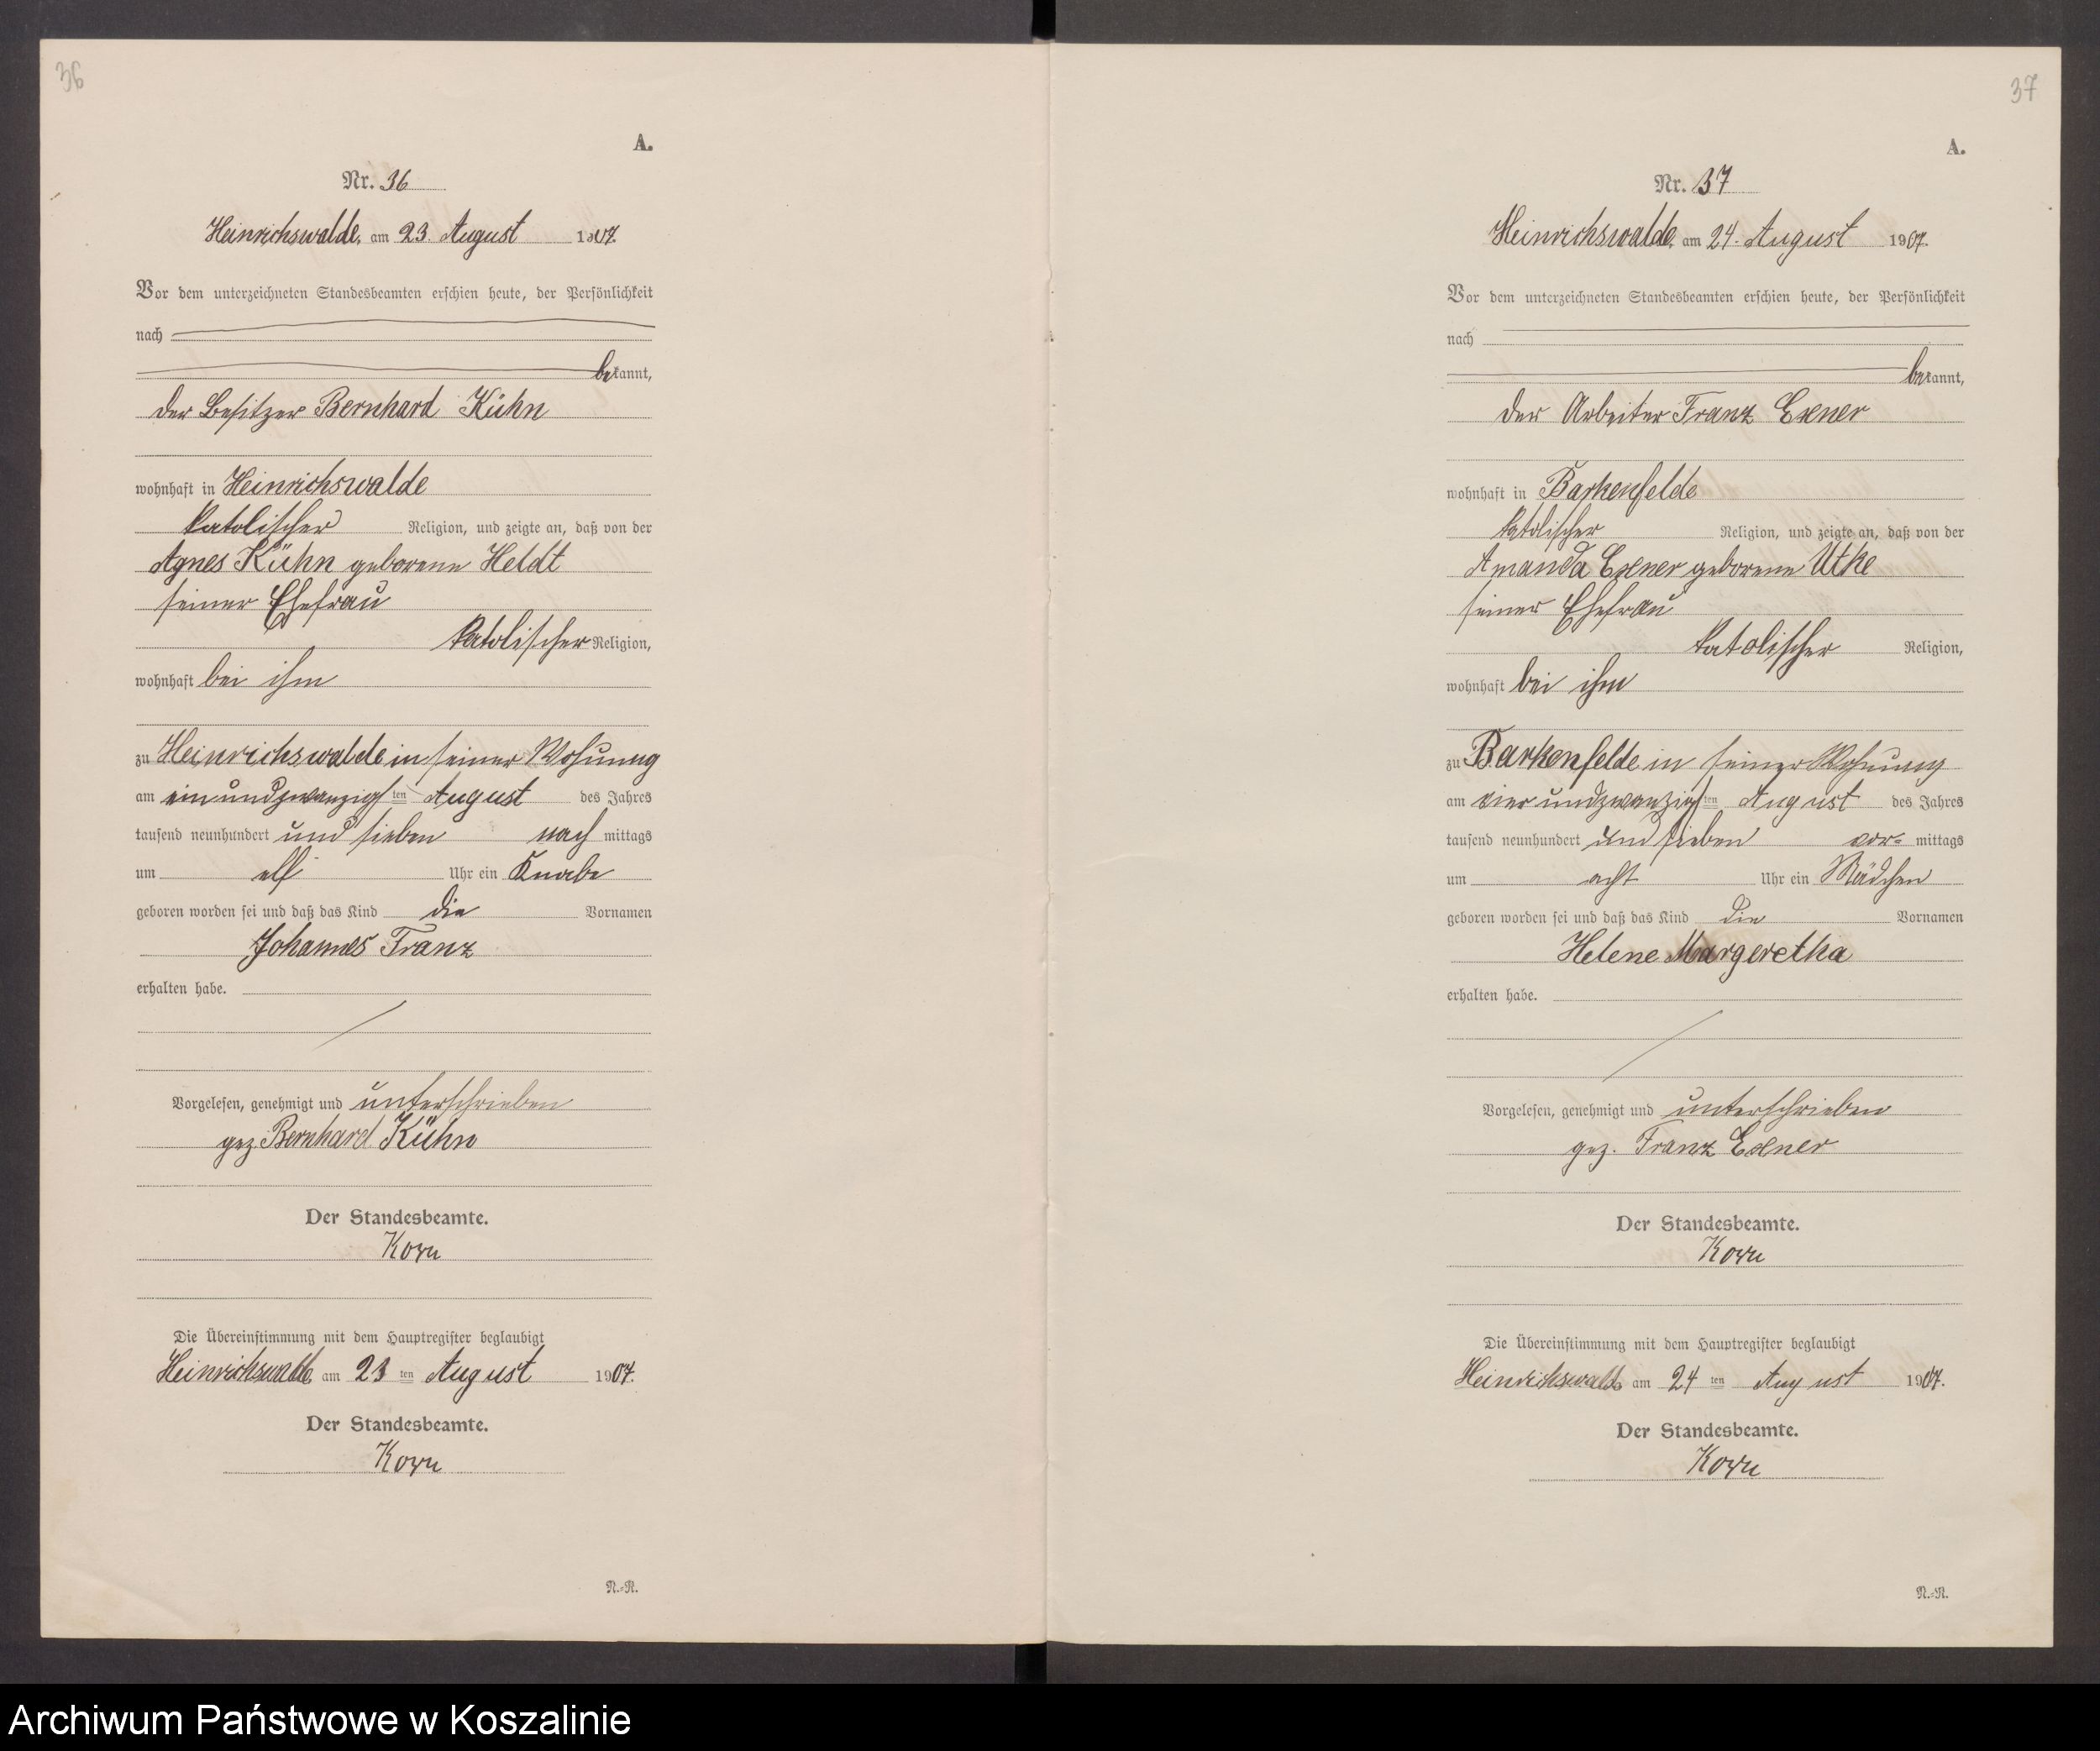 36
A.
Nr. 36
Heinrichswalde, am 23. August 1907.
Vor dem unterzeichneten Standesbeamten erschien heute, der Persönlichkeit
nach
bekannt,
der Besitzer Bernhard Kühn
wohnhaft in Heinrichswalde
katolischer Religion, und zeigte an, daß von der
Agnes Kühn geborene Heldt
seiner Ehefrau
katolischer Religion,
wohnhaft bei ihm
zu Heinrichswalde in seiner Wohnung
am einundzwanzigsten August des Jahres
tausend neunhundert und sieben nach mittags
um elf Uhr ein Knabe
geboren worden sei und daß das Kind die Vornamen
Johannes Franz
erhalten habe.
Vorgelesen, genehmigt und unterschrieben
gez. Bernhard Kühn
Der Standesbeamte.
Korn
Die Übereinstimmung mit dem Hauptregister beglaubigt
Heinrichswalde, am 23 ten August 1907.
Der Standesbeamte.
Korn
N.-R.
37
A.
Nr. 37
Heinrichswalde, am 24. August 1907.
Vor dem unterzeichneten Standesbeamten erschien heute, der Persönlichkeit
nach
bekannt,
der Arbeiter Franz Exner
wohnhaft in Barkenfelde
katolischer Religion, und zeigte an, daß von der
Amanda Exner geborene Utke
seiner Ehefrau
katolischer Religion,
wohnhaft bei ihm
zu Barkenfelde in seiner Wohnung
am vierundzwanzigsten August des Jahres
tausend neunhundert und sieben vor= mittags
um acht Uhr ein Mädchen
geboren worden sei und daß das Kind die Vornamen
Helene Margeretha
erhalten habe.
Vorgelesen, genehmigt und unterschrieben
gez. Franz Exner
Der Standesbeamte.
Korn
Die Übereinstimmung mit dem Hauptregister beglaubigt
Heinrichswalde am 24 ten August 1907.
Der Standesbeamte.
Korn
N.-R.
Archiwum Państwowe w Koszalinie